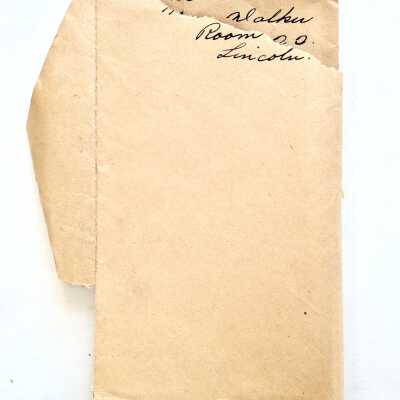 Walker
Room 20.
Lincoln.